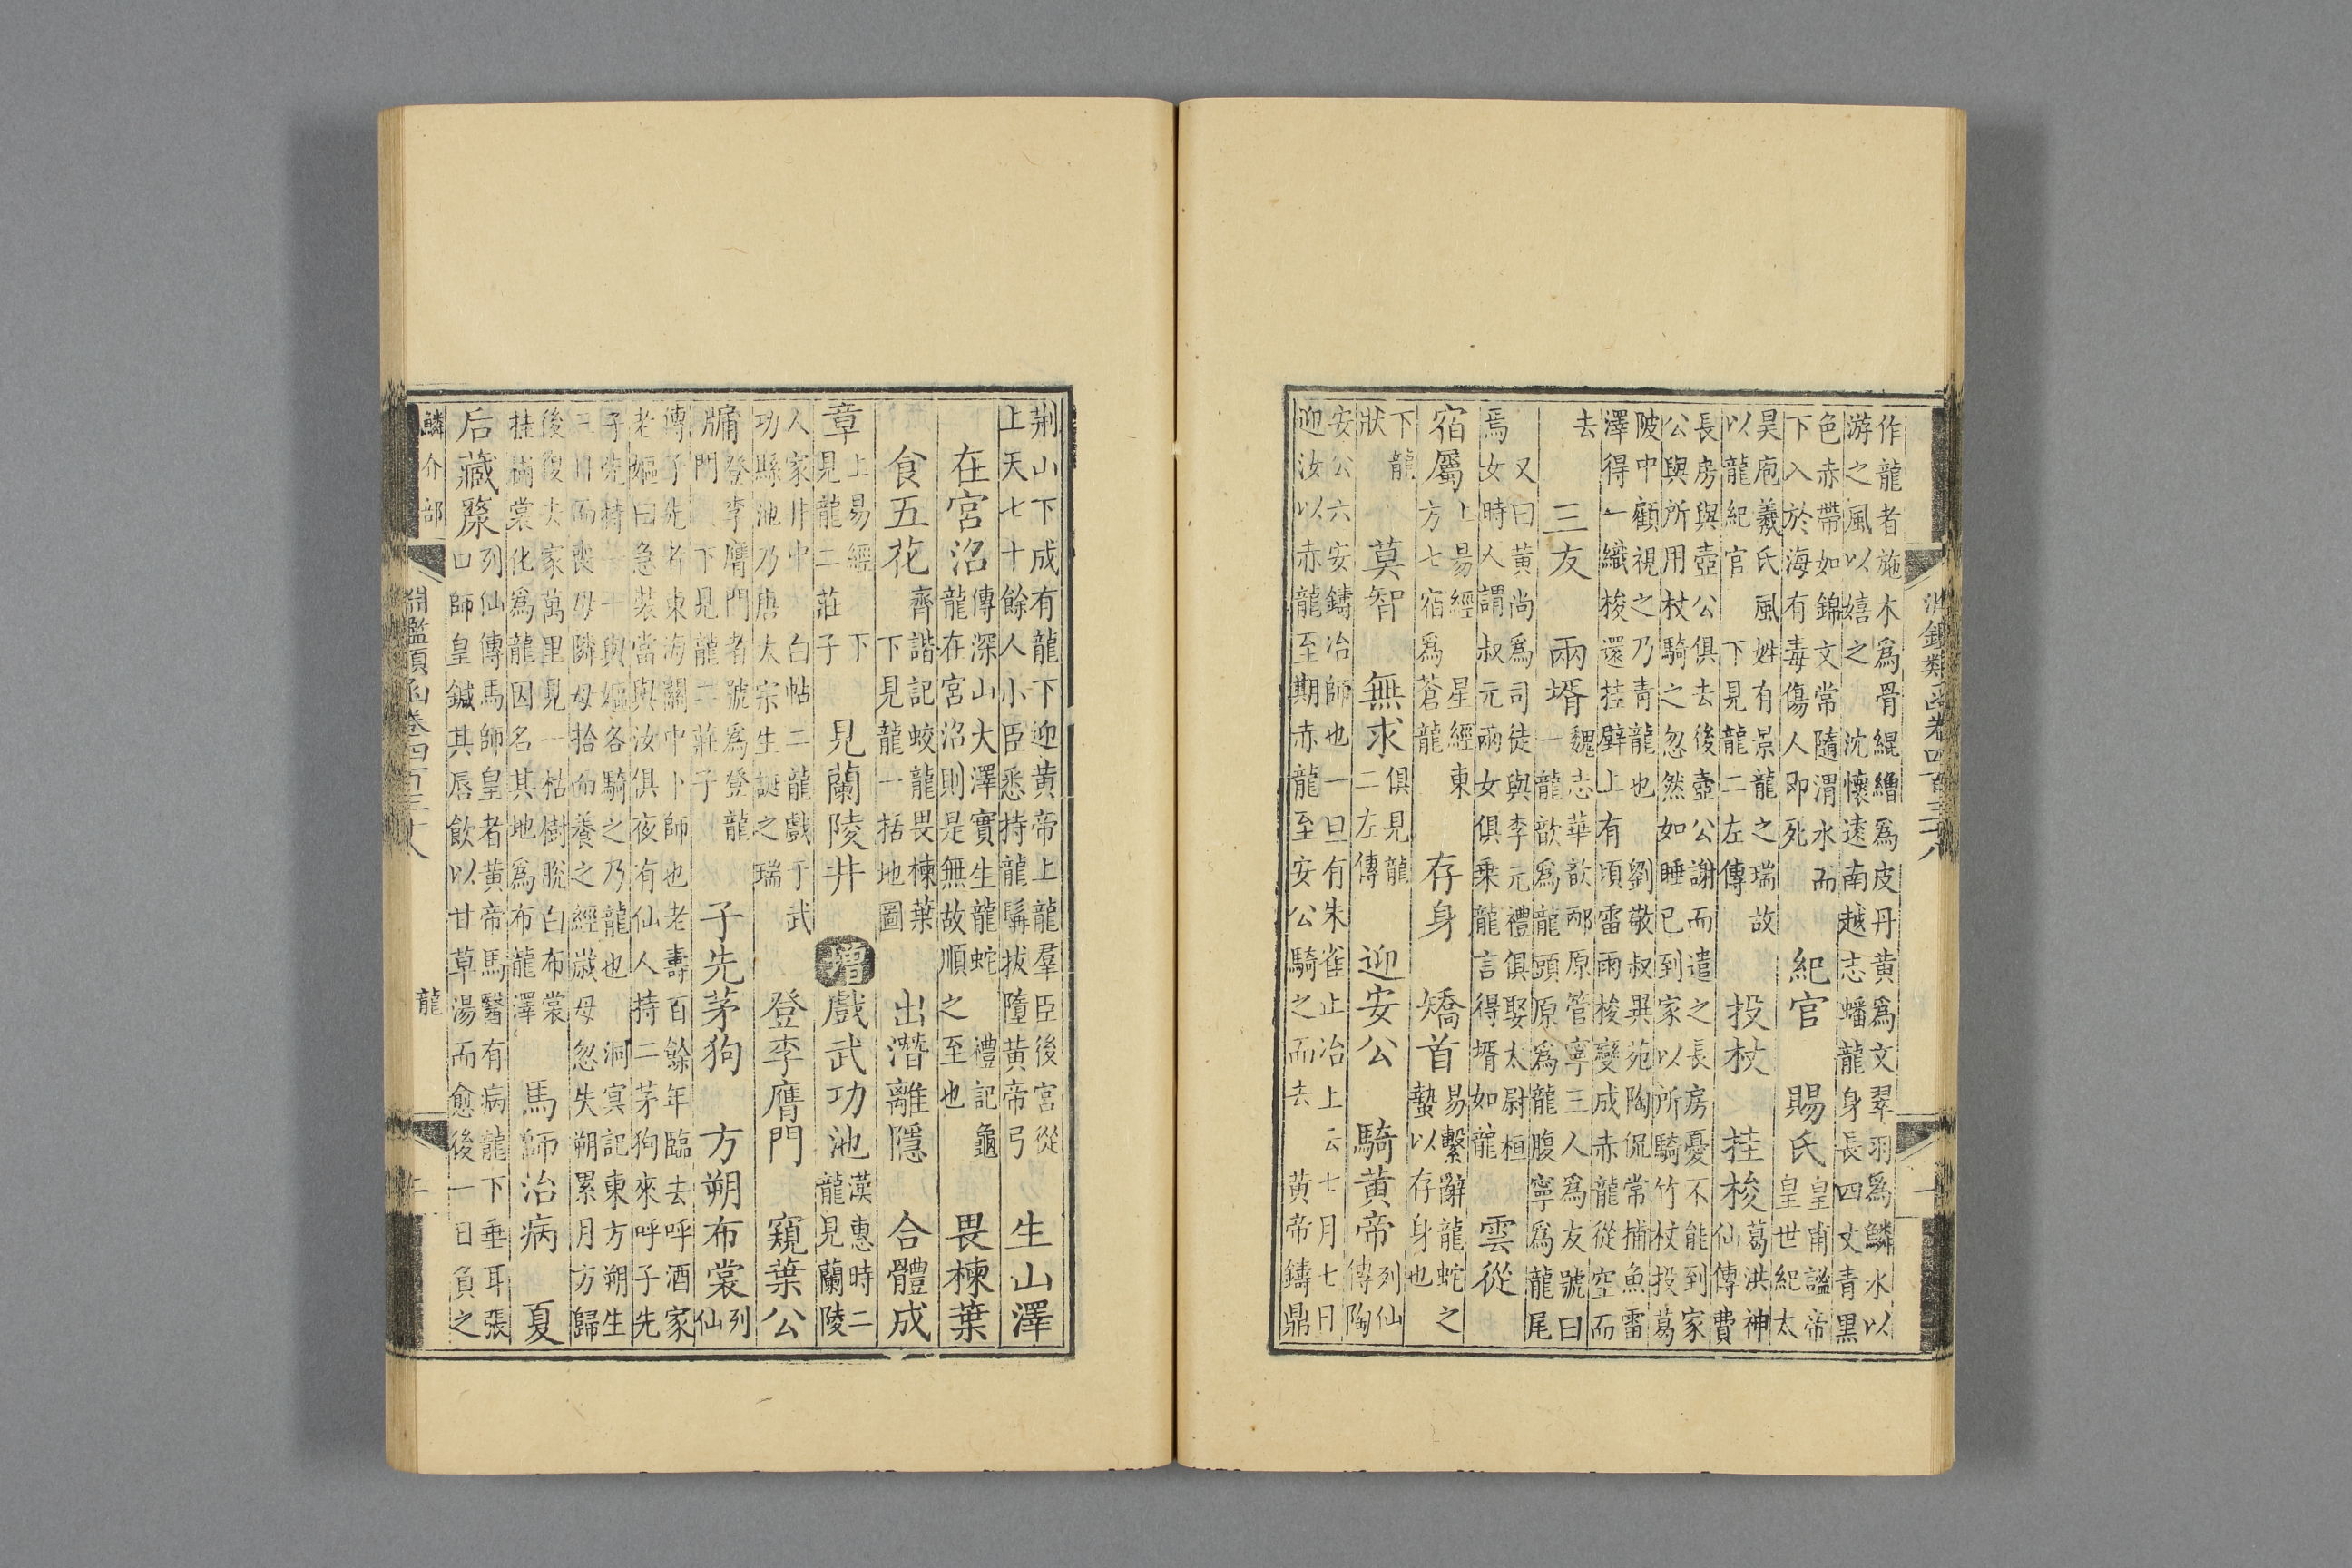 淵鑑類函卷四百三十八 十
作龍者施木為骨緄繒為皮丹黃為文翠羽為鱗水以
游之風以嬉之 沈懷遠南越志蟠龍身長四丈青黑
色赤帶如錦文常隨渭水而
下入於海有毒傷人即死
紀官 賜氏
皇甫謐帝
皇世紀太
昊庖羲氏風姓有景龍之瑞故
以龍紀官 下見龍二左傳
投杖 挂梭
葛洪神
仙傳費
長房與壺公俱去後壺公謝而遣之長房憂不能到家
公與所用杖騎之忽然如睡已到家以所騎竹杖投葛
陂中顧視之乃青龍也 劉敬叔異苑陶侃常捕魚雷
澤得一織梭還挂壁上有頃雷雨梭變成赤龍從空而
去
三友 兩壻
魏志華歆邴原管寧三人為友號曰
一龍歆為龍頭原為龍腹寧為龍尾
又曰黃尚為司徒與李元禮俱娶太尉桓
焉女時人謂叔元兩女俱乘龍言得壻如龍
雲從
宿屬
上易經 星經東
方七宿為蒼龍
存身 矯首
易繫辭龍蛇之
蟄以存身也
下龍
狀
莫智 無求
俱見龍
二左傳
迎安公 騎黃帝
列仙
傳陶
安公六安鑄冶師也一旦有朱雀止冶上云七月七日
迎汝以赤龍至期赤龍至安公騎之而去 黃帝鑄鼎
荆山下成有龍下迎黃帝上龍羣臣後宮從
上天七十餘人小臣悉持龍髯拔墮黃帝弓
生山澤
在宮沼
傳深山大澤實生龍蛇 禮記龜
龍在宮沼則是無故順之至也
畏楝葉
食五花
齊諧記蛟龍畏楝葉
下見龍一括地圖
出潛離隱 合體成
章
上易經 下
見龍二莊子
見蘭陵井 增 戲武功池
漢惠時二
龍見蘭陵
人家井中 白帖二龍戲于武
功縣池乃唐太宗生誕之瑞
登李膺門 窺葉公
牖
登李膺門者號為登龍
門 下見龍二莊子
子先茅狗 方朔布裳
列
仙
傳子先者東海關中卜師也老壽百餘年臨去呼酒家
老嫗曰急裝當與汝俱夜有仙人持二茅狗來呼子先
子先持一與嫗各騎之乃龍也 洞冥記東方朔生
三日而喪母隣母拾而養之經歲母忽失朔累月方歸
後復去家萬里見一枯樹脫白布裳
挂樹裳化為龍因名其地為布龍澤
馬師治病 夏
后藏漦
列仙傳馬師皇者黃帝馬醫有病龍下垂耳張
口師皇鍼其唇飲以甘草湯而愈後一日負之
鱗介部 龍
淵鑑類函卷四百三十八